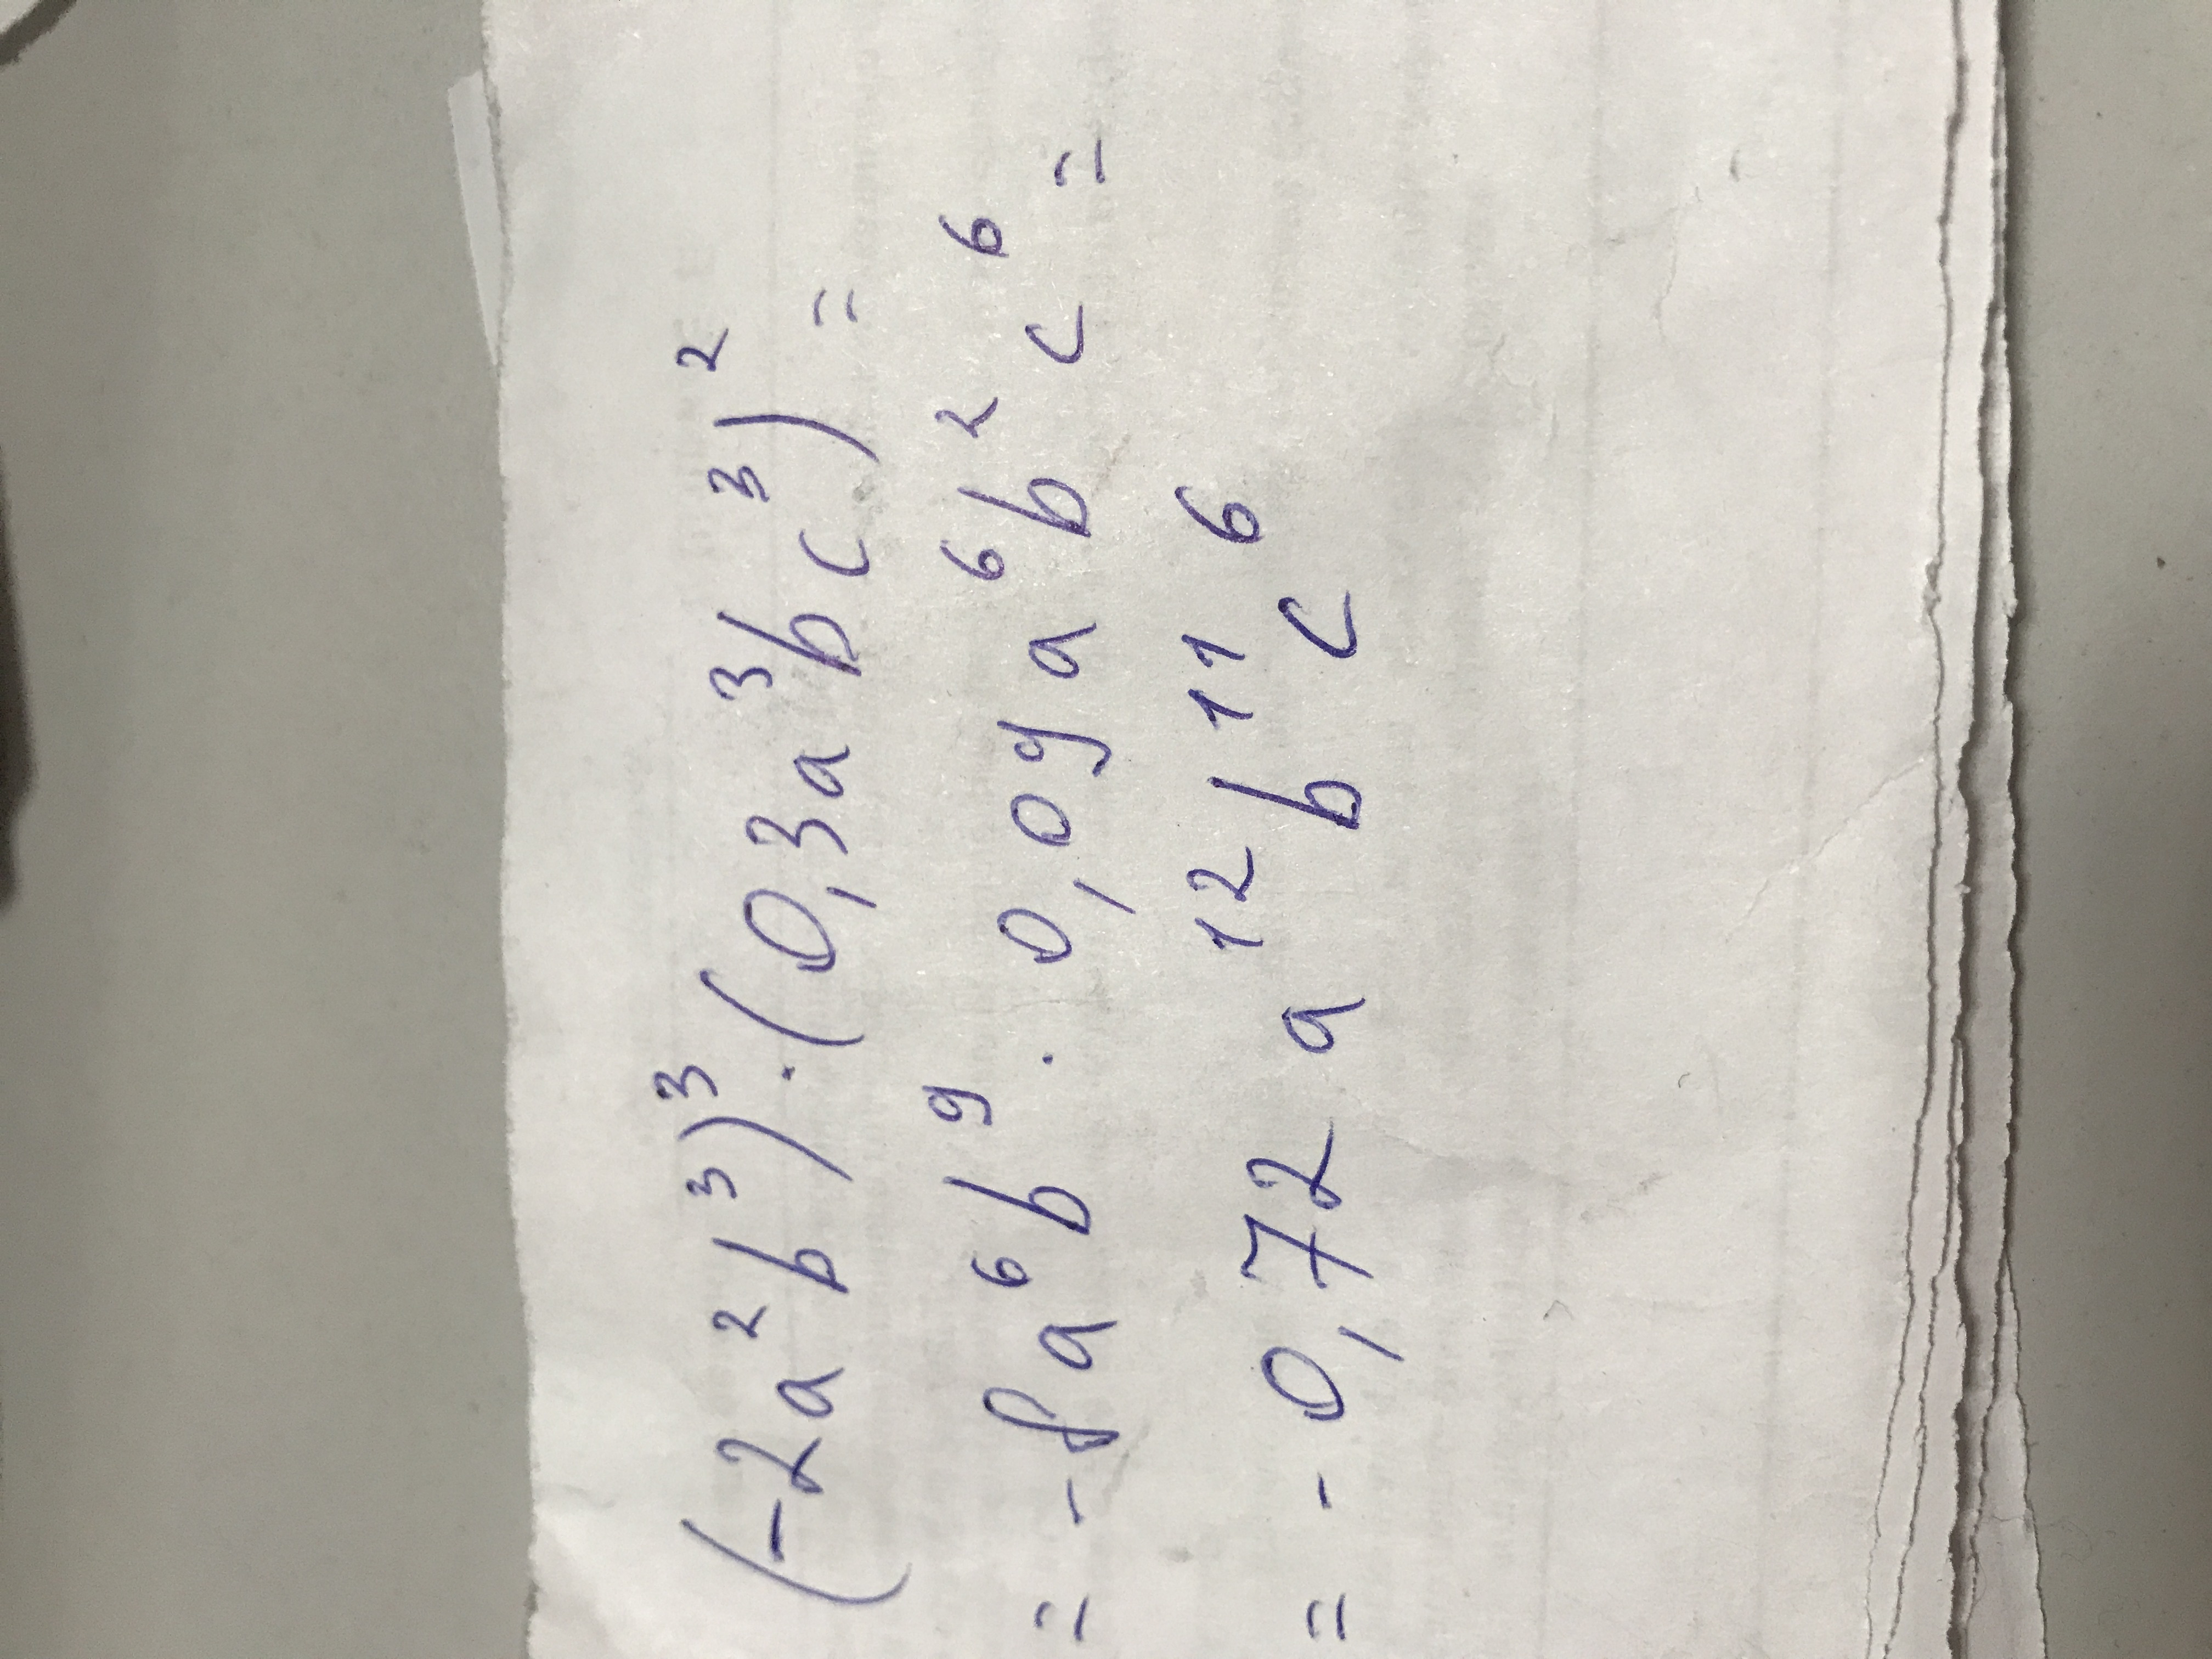 (-2a²b³)³·(0,3a³bc³)² =
= -8a⁶b⁹ · 0,09a⁶b²c⁶ =
= -0,72a¹²b¹¹c⁶